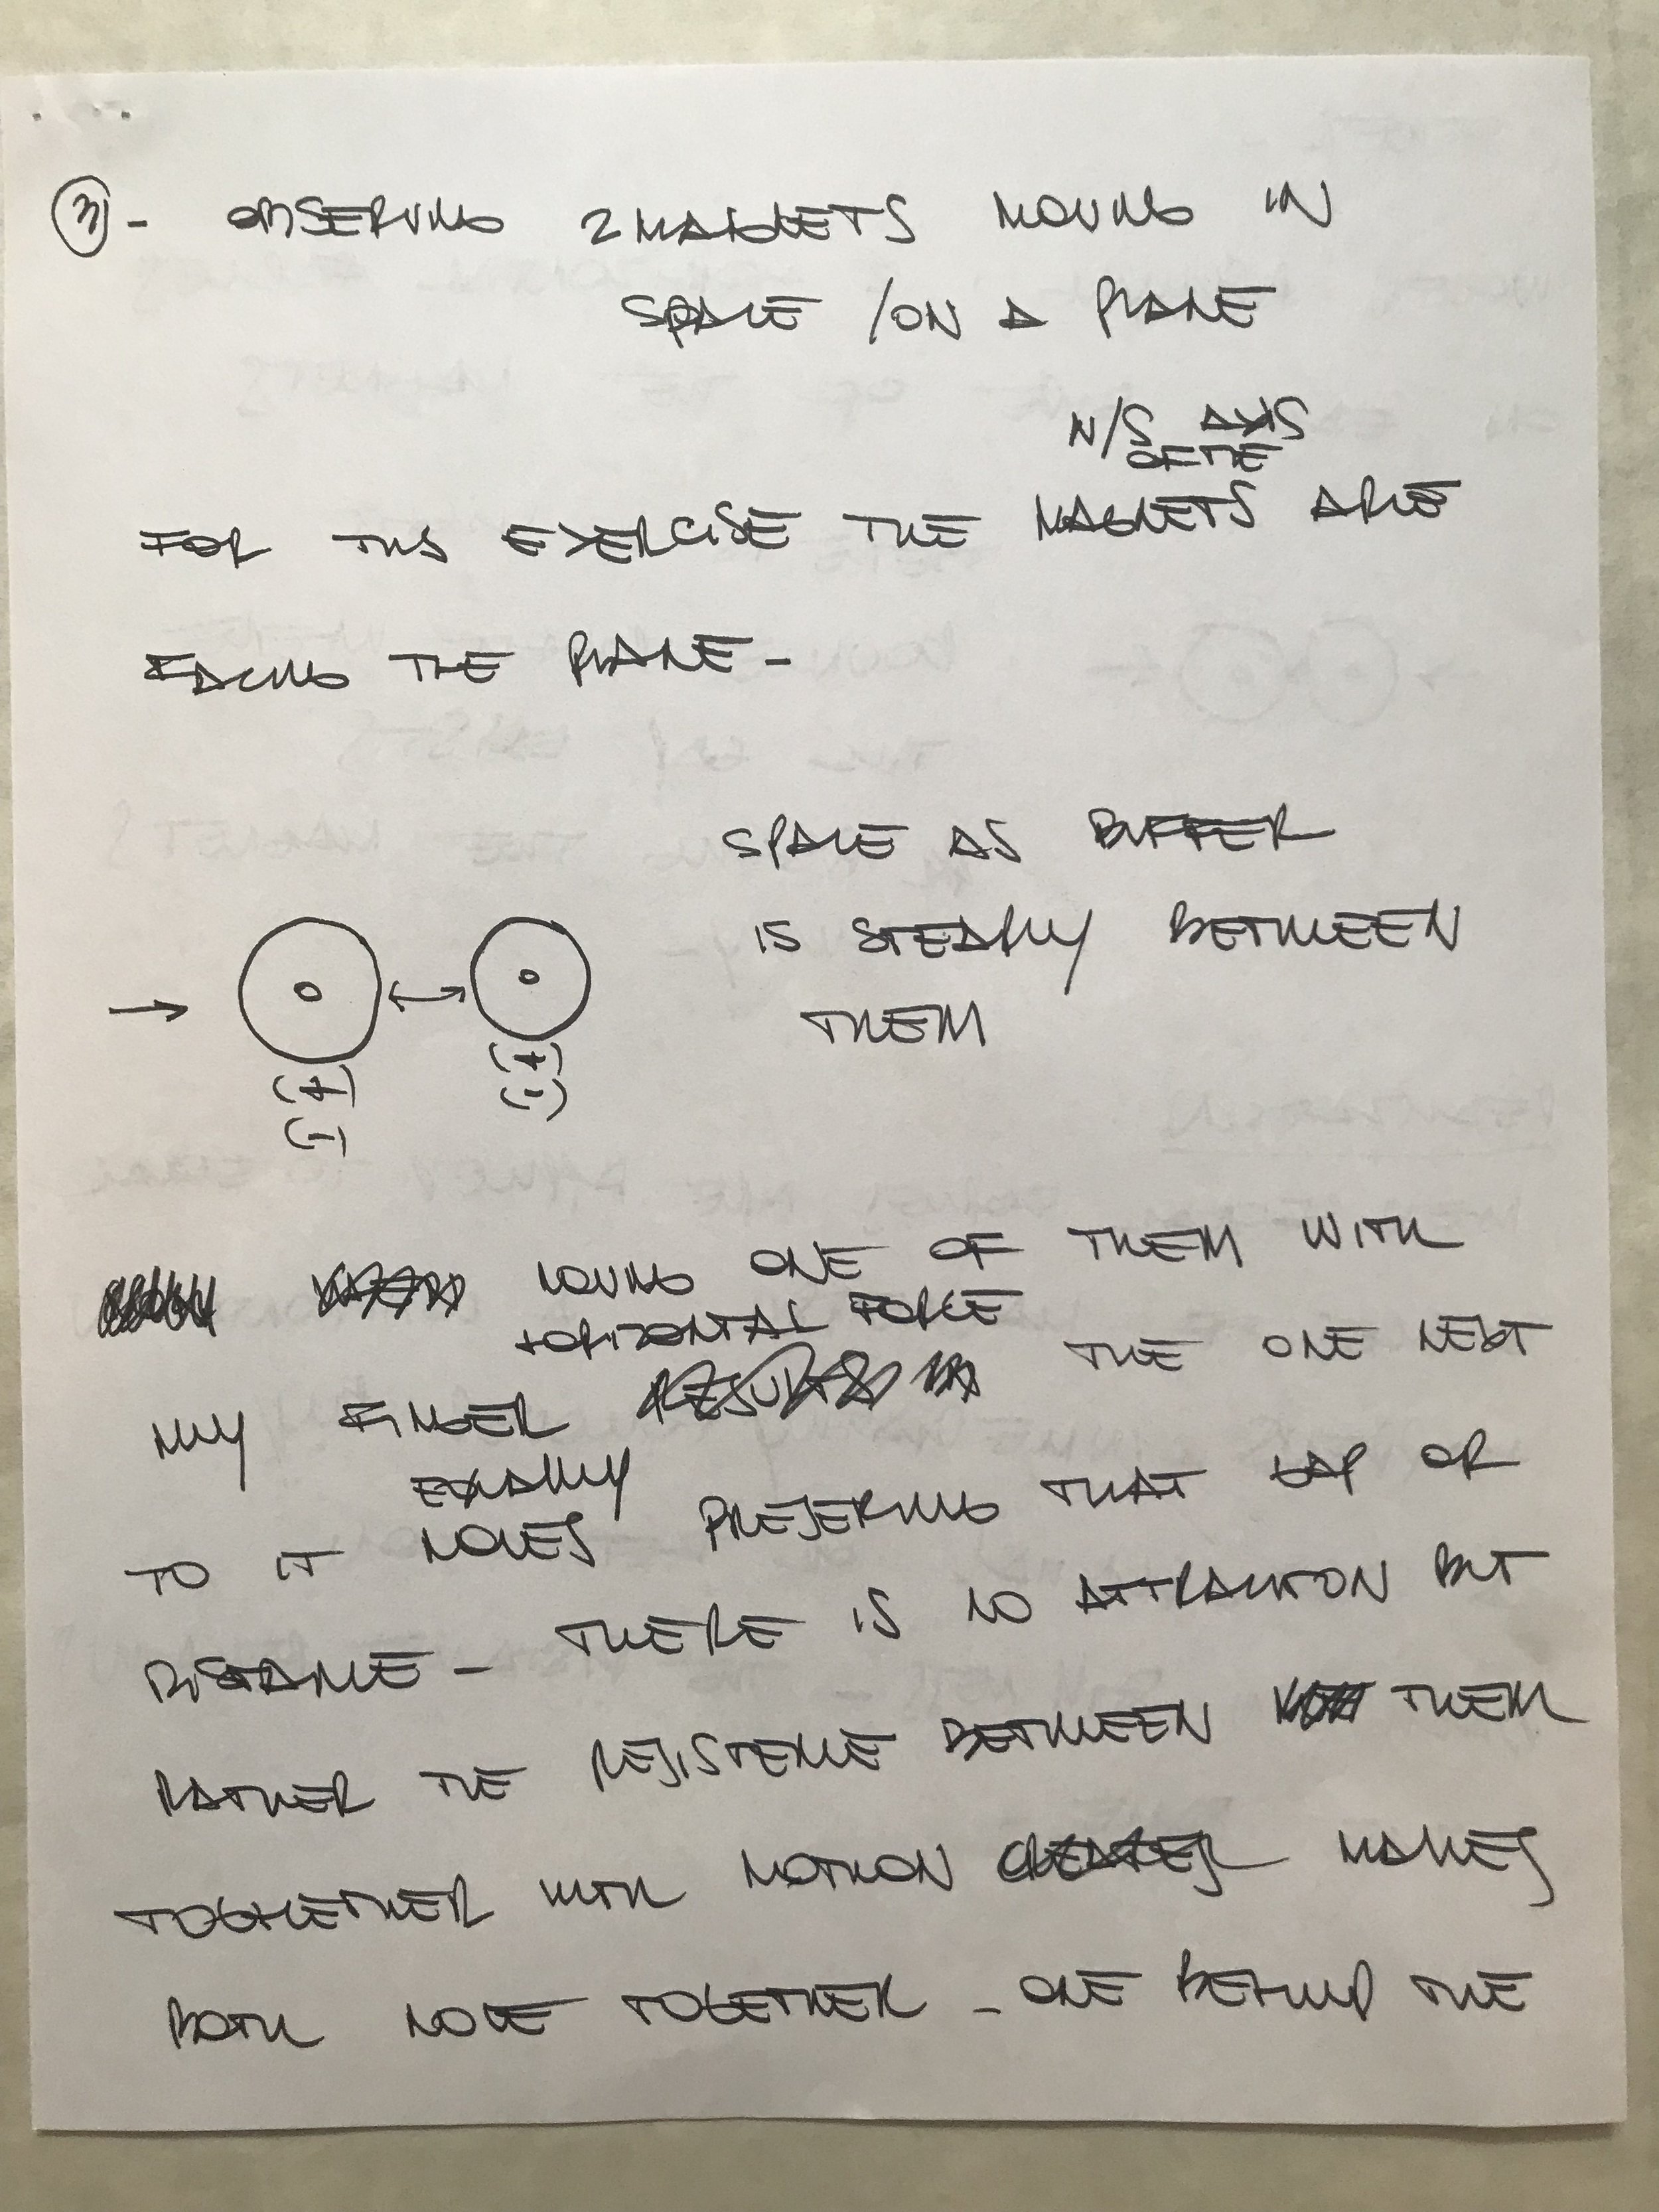 3 - OBSERVING 2 MAGNETS MOVING IN
SPACE / ON A PLANE
N/S AXIS
OF THE
FOR THIS EXERCISE THE MAGNETS ARE
FACING THE PLANE -
SPACE AS BUFFER
IS STEADILY BETWEEN
THEM
(+) (+)
(-) (-)
MOVING ONE OF THEM WITH
HORIZONTAL FORCE
MY FINGER THE ONE NEXT
EQUALLY
TO IT MOVES PRESERVING THAT GAP OR
DISTANCE - THERE IS NO ATTRACTION BUT
RATHER THE RESISTENCE BETWEEN THEM
TOGHETHER WITH MOTION MAKES
BOTH MOVE TOGETHER - ONE BEHIND THE